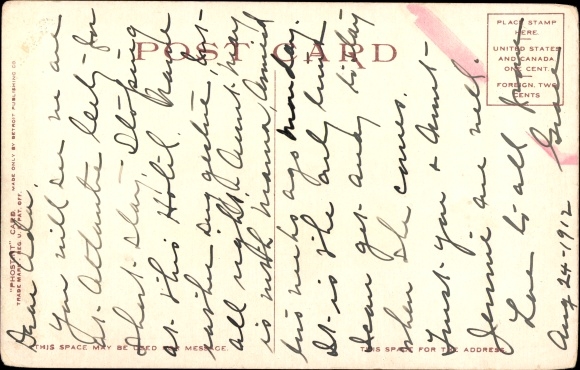 POST CARD
PLACE STAMP
HERE.
UNITED STATES
AND CANADA
ONE CENT.
FOREIGN, TWO
CENTS
"PHOSTINT" CARD
TRADE MARK REG. U.S. PAT. OFF.
MADE ONLY BY DETROIT PUBLISHING CO.
THIS SPACE MAY BE USED FOR MESSAGE.
THIS SPACE FOR THE ADDRESS
Dear Ada,
You will see we are
at Atlantic City for
short stay - Stopping
at this Hotel.
all right. Aunt May
is with mama, arrived
two weeks ago monday.
It is the only time
get away
when she comes.
Trust you & Aunt
Jennie are well.
Love to all from
Grace
Aug 24-1912